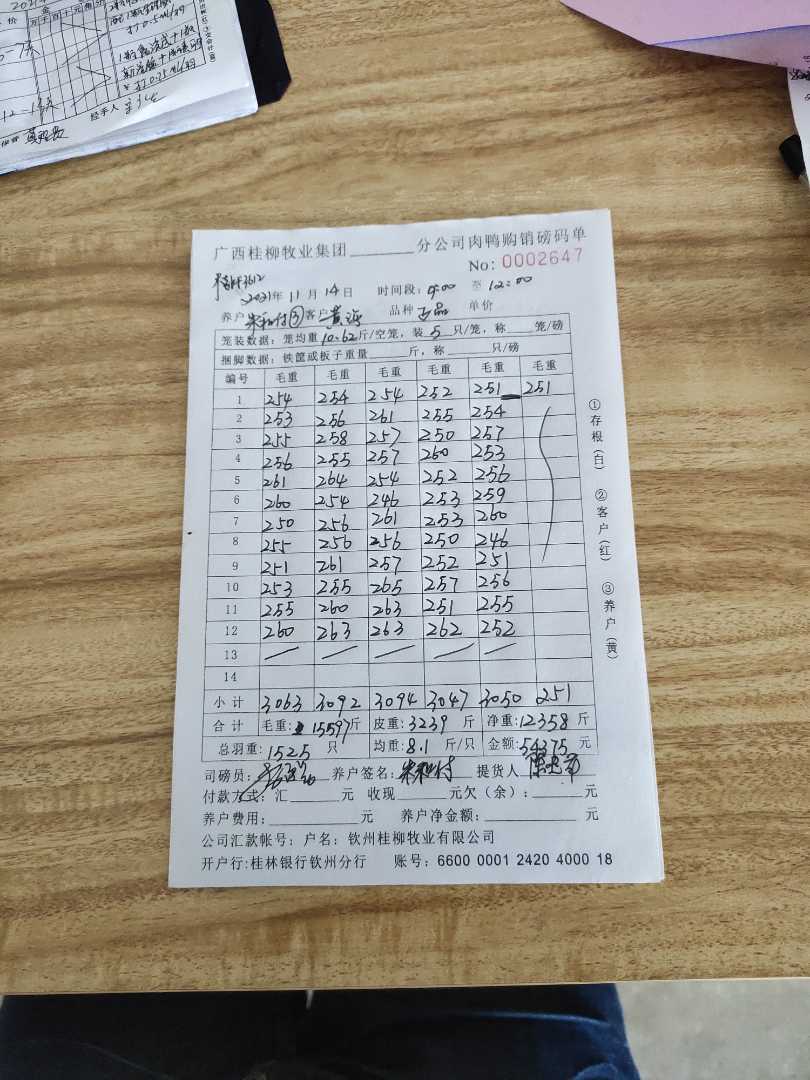 广西桂柳牧业集团______分公司肉鸭购销磅码单
No: 0002647
2021年 11月 14日 时间段: 9:00 至 12:00
养户 朱和付③ 客户 黄海 品种 正品 单价
笼装数据: 笼均重10.62斤/空笼, 装 5 只/笼, 称____笼/磅
捆脚数据: 铁筐或板子重量____斤, 称____只/磅
编号 毛重 毛重 毛重 毛重 毛重 毛重
1 254 254 254 252 251 251
2 253 256 261 255 254
3 255 258 257 250 257
4 256 255 257 260 253
5 261 264 254 252 256
6 260 254 246 253 259
7 250 256 261 253 260
8 255 256 256 250 246
9 251 261 257 252 251
10 253 255 265 257 256
11 255 260 263 251 255
12 260 263 263 262 252
13 — — — — —
14
小计 3063 3092 3094 3047 3050 251
合计 毛重: 15597斤 皮重: 3239 斤 净重: 12358 斤
总羽重: 1525 只 均重: 8.1 斤/只 金额: 54375 元
司磅员: 养户签名: 朱和付 提货人
付款方式: 汇______元 收现______元欠(余): ______元
养户费用: ______元 养户净金额: ______元
公司汇款帐号: 户名: 钦州桂柳牧业有限公司
开户行:桂林银行钦州分行 账号: 6600 0001 2420 4000 18
①存根(白) ②客户(红) ③养户(黄)
经手人